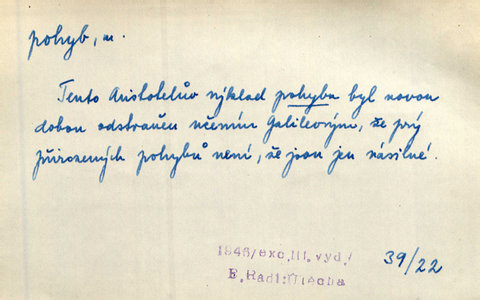 pohyb, m.
Tento Aristotelův výklad pohybu byl novou
dobou odstraněn učením Galileovým, že prý
přirozených pohybů není, že jsou jen násilné.
1946/exc.III.vyd./
E.Rádl:Útěcha
39/22